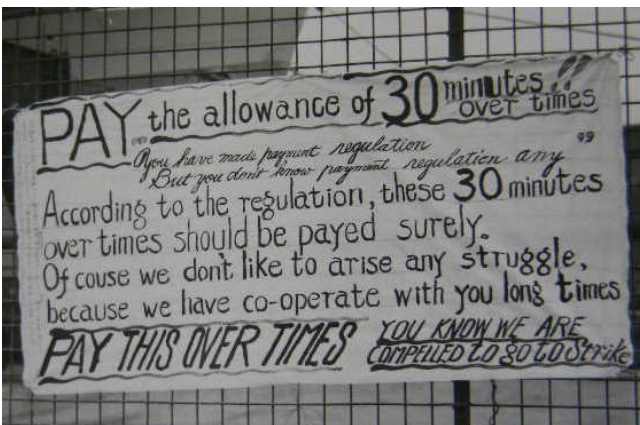 PAY the allowance of 30 minutes over times!!
"you have made payment regulation
But you don't know payment regulation any"
According to the regulation, these 30 minutes
over times should be payed surely.
Of couse we don't like to arise any struggle,
because we have co-operate with you long times
PAY THIS OVER TIMES YOU KNOW WE ARE
COMPELLED to go to Strike